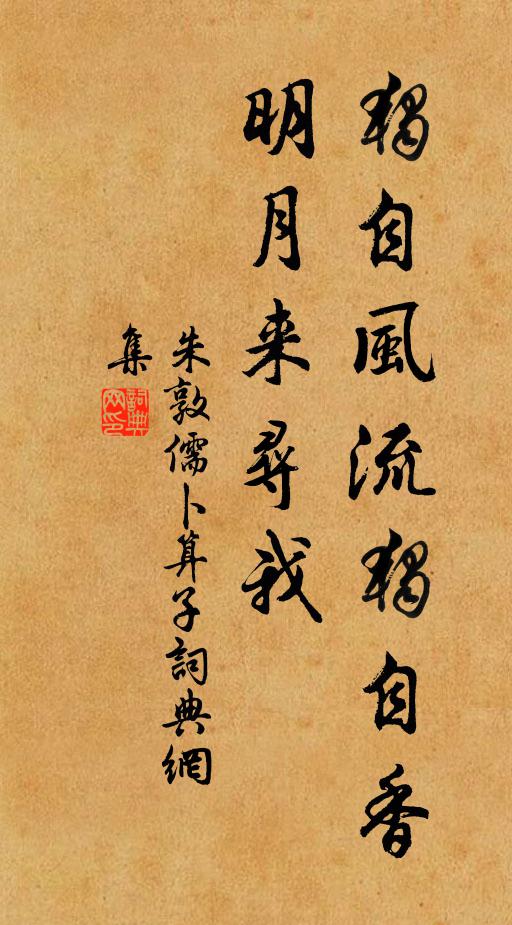 獨自風流獨自香
明月来尋我
朱敦儒卜算子詞典網
集
詞典
网印